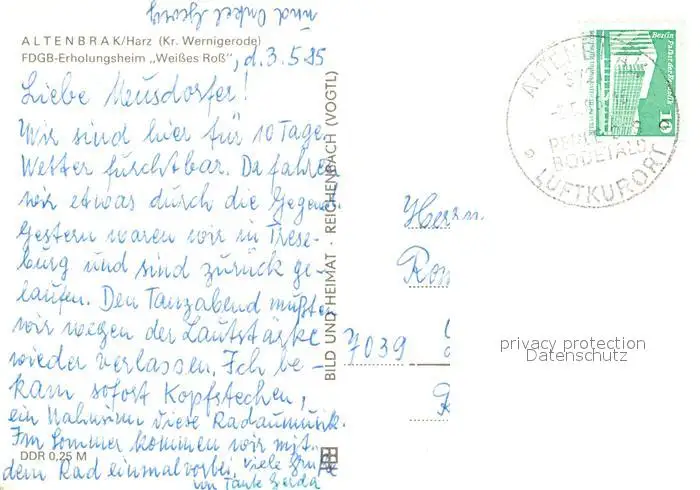 und Onkel Georg
ALTENBRAK/Harz (Kr. Wernigerode)
FDGB-Erholungsheim „Weißes Roß“, d. 3.5.85
Liebe Meusdorfer!
Wir sind hier für 10 Tage.
Wetter furchtbar. Da fahren
wir etwas durch die Gegend.
Gestern waren wir in Trese-
burg und sind zurück ge-
laufen. Den Tanzabend mußten
wir wegen der Lautstärke
wieder verlassen. Ich be-
kam sofort Kopfstechen,
ein Wahnsinn diese Radaumusik.
Im Sommer kommen wir mit
dem Rad einmal vorbei. Viele Grüße
von Tante Gerda
DDR 0,25 M
BILD UND HEIMAT · REICHENBACH (VOGTL)
ALTENBRAK
PERLE DES
BODETALS
LUFTKURORT
Berlin Palast der Republik
10
Herrn
7039
privacy protection
Datenschutz